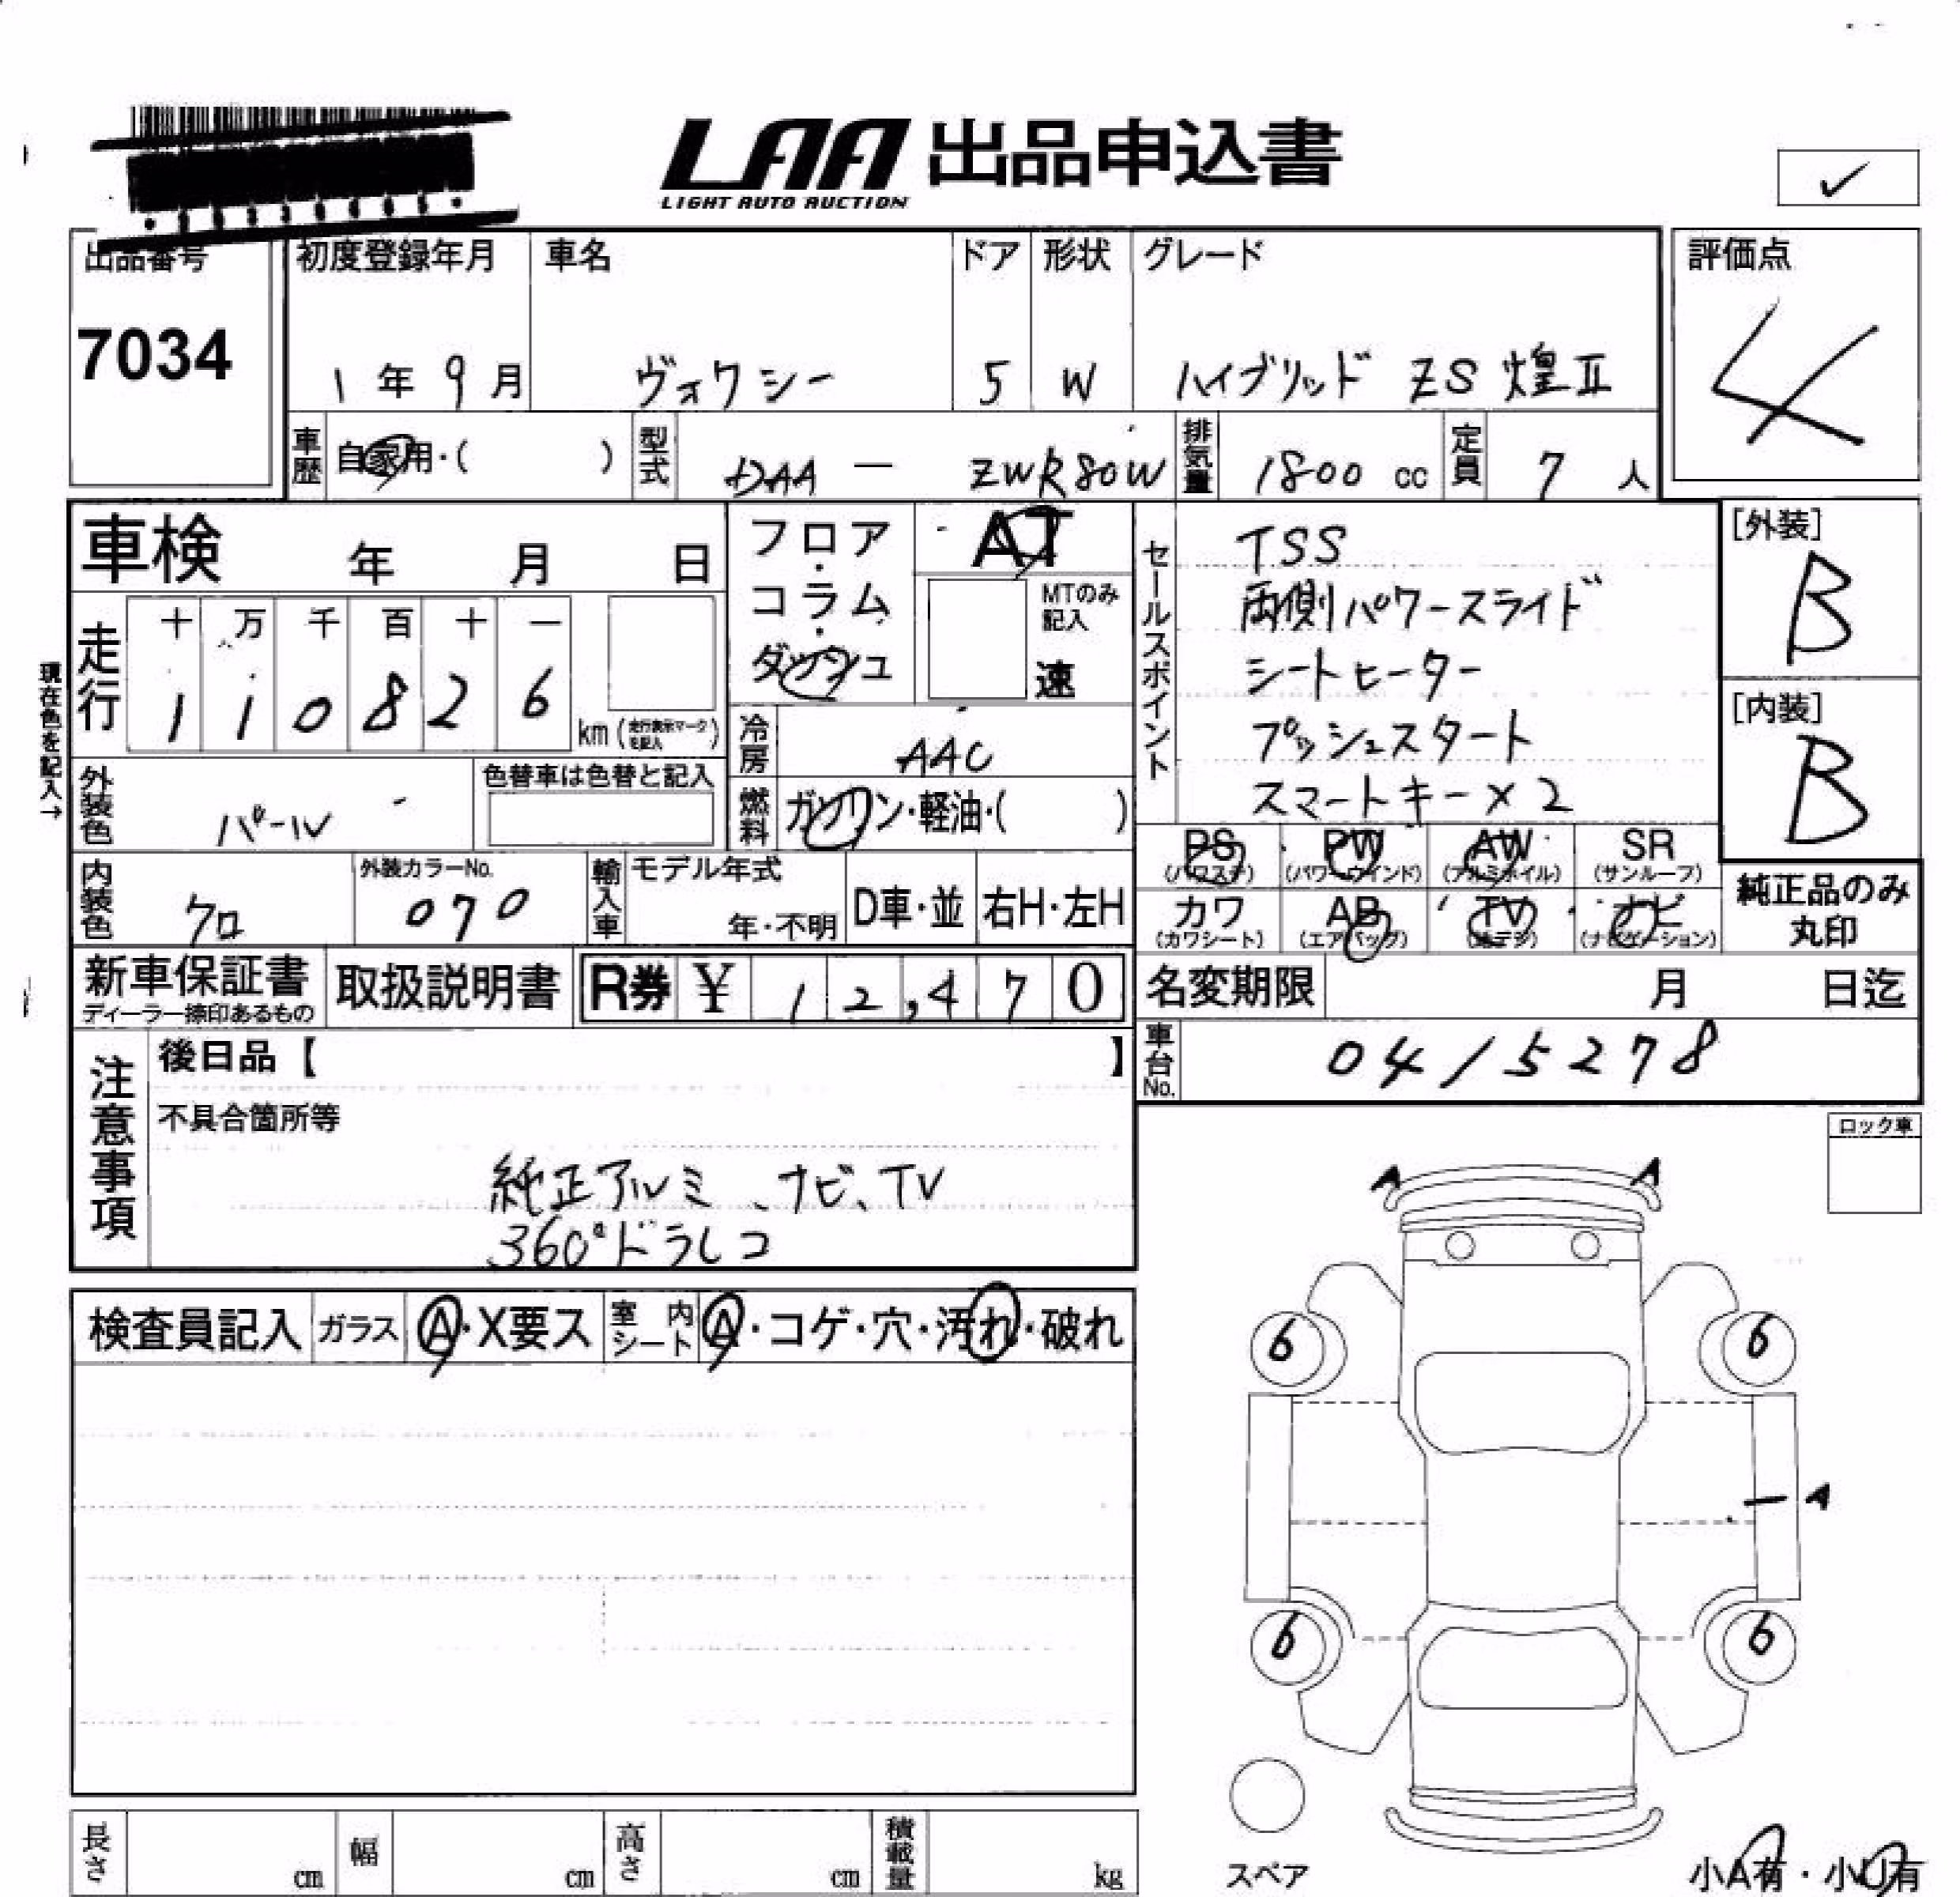 LAA 出品申込書
LIGHT AUTO AUCTION
✓
出品番号 初度登録年月 車名 ドア 形状 グレード 評価点
7034 1年9月 ヴォクシー 5 W ハイブリッド ZS 煌Ⅱ 4
車歴 自家用・( ) 型式 DAA — ZWR80W 排気量 1800 cc 定員 7 人
車検 年 月 日
フロア・コラム・ダッシュ
AT
MTのみ記入
速
セールスポイント
TSS
両側パワースライド
シートヒーター
プッシュスタート
スマートキー×2
[外装]
B
[内装]
B
現在色を記入→
走行 十 万 千 百 十 一
1 1 0 8 2 6 km (走行表示マークを記入)
冷房 AAC
外装色 パール 色替車は色替と記入
燃料 ガソリン・軽油・( )
PS (パワステ) PW (パワーウインド) AW (アルミホイル) SR (サンルーフ)
カワ (カワシート) AB (エアバッグ) TV (地デジ) ナビ (ナビゲーション)
純正品のみ
丸印
内装色 クロ 外装カラーNo. 070 輸入車 モデル年式 年・不明 D車・並 右H・左H
新車保証書 ディーラー捺印あるもの 取扱説明書 R券 ¥ 12,470
名変期限 月 日迄
車台No. 0415278
注意事項
後日品【 】
不具合箇所等
純正アルミ、ナビ、TV
360°ドラレコ
ロック車
A A
検査員記入 ガラス A・X要ス 室内シート A・コゲ・穴・汚れ・破れ
6 6
A
6 6
長さ cm 幅 cm 高さ cm 積載量 kg
スペア
小A有・小U有